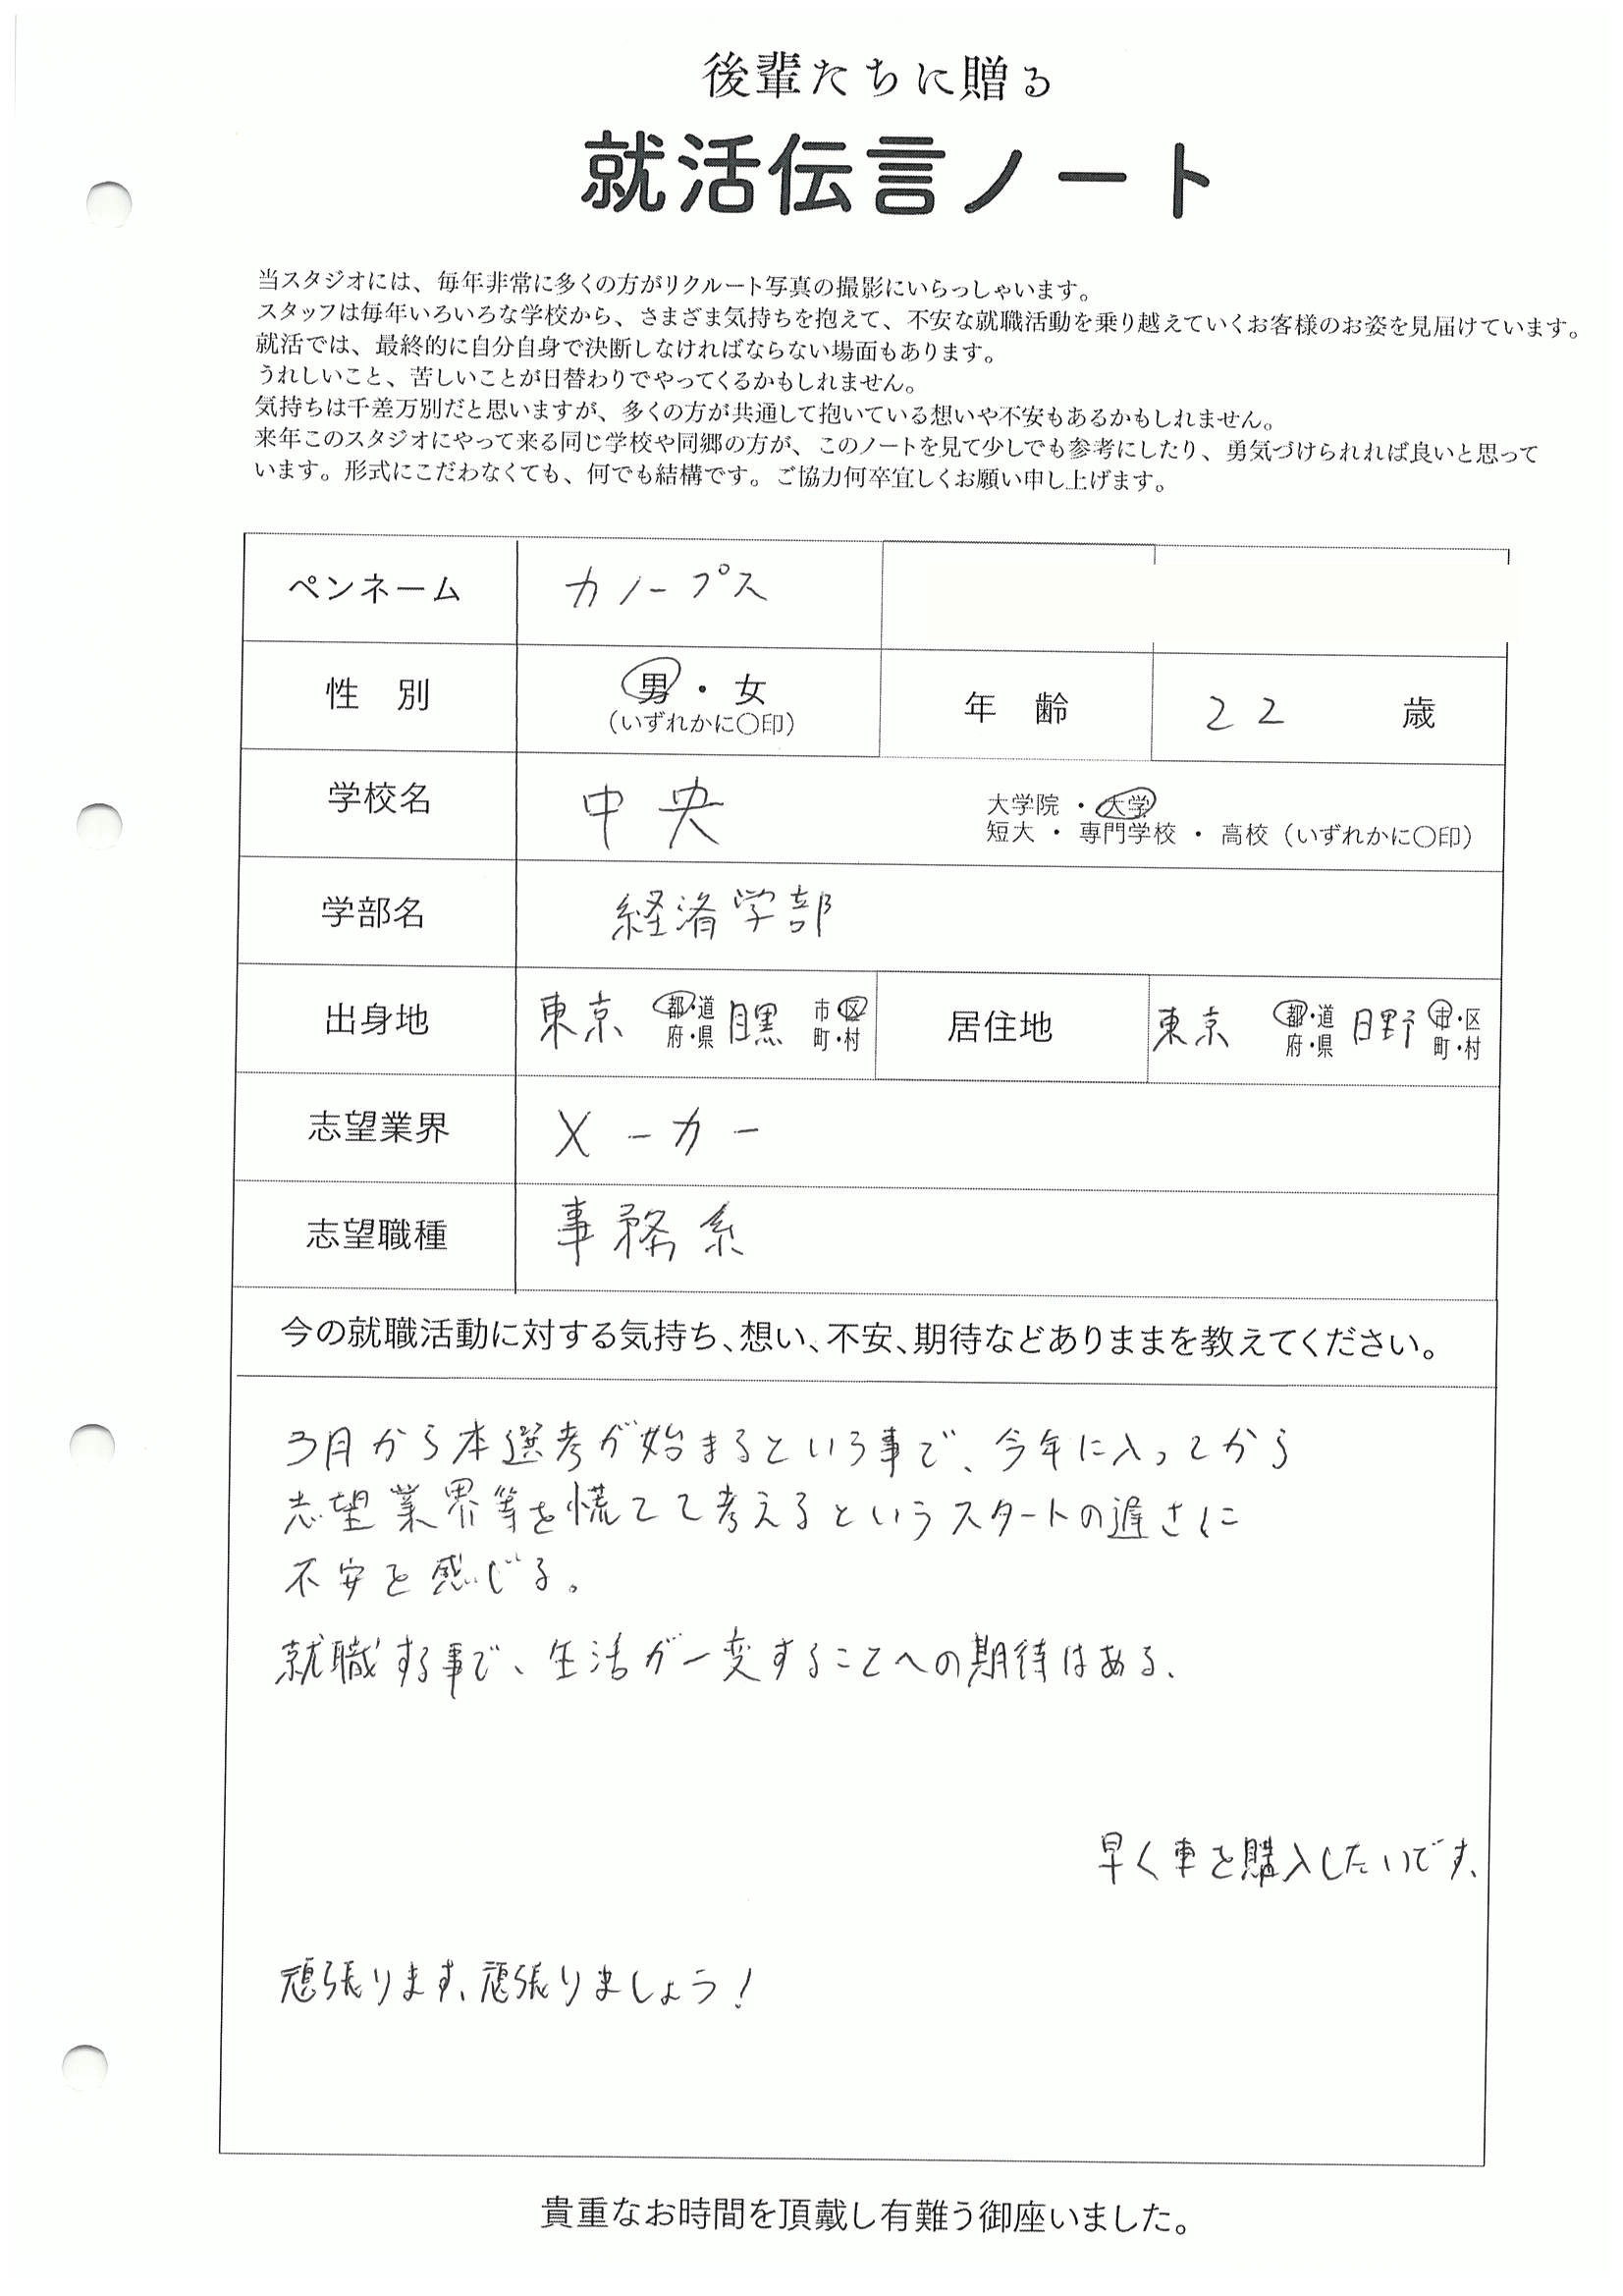 後輩たちに贈る
就活伝言ノート
当スタジオには、毎年非常に多くの方がリクルート写真の撮影にいらっしゃいます。
スタッフは毎年いろいろな学校から、さまざま気持ちを抱えて、不安な就職活動を乗り越えていくお客様のお姿を見届けています。
就活では、最終的に自分自身で決断しなければならない場面もあります。
うれしいこと、苦しいことが日替わりでやってくるかもしれません。
気持ちは千差万別だと思いますが、多くの方が共通して抱いている想いや不安もあるかもしれません。
来年このスタジオにやって来る同じ学校や同郷の方が、このノートを見て少しでも参考にしたり、勇気づけられれば良いと思って
います。形式にこだわなくても、何でも結構です。ご協力何卒宜しくお願い申し上げます。
ペンネーム カノープス
性 別 男・女 (いずれかに〇印) 年 齢 22 歳
学校名 中央 大学院・大学
短大・専門学校・高校(いずれかに〇印)
学部名 経済学部
出身地 東京 都・道 府・県 目黒 市・区 町・村 居住地 東京 都・道 府・県 日野 市・区 町・村
志望業界 メーカー
志望職種 事務系
今の就職活動に対する気持ち、想い、不安、期待などありままを教えてください。
3月から本選考が始まるという事で、今年に入ってから
志望業界等を慌てて考えるというスタートの遅さに
不安を感じる。
就職する事で、生活が一変することへの期待はある、
早く車を購入したいです、
頑張ります、頑張りましょう!
貴重なお時間を頂戴し有難う御座いました。